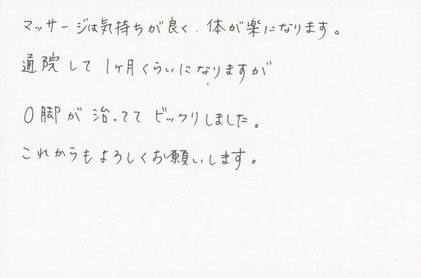 マッサージは気持ちが良く、体が楽になります。
通院して1ヶ月くらいになりますが
O脚が治ってて ビックリしました。
これからもよろしくお願いします。